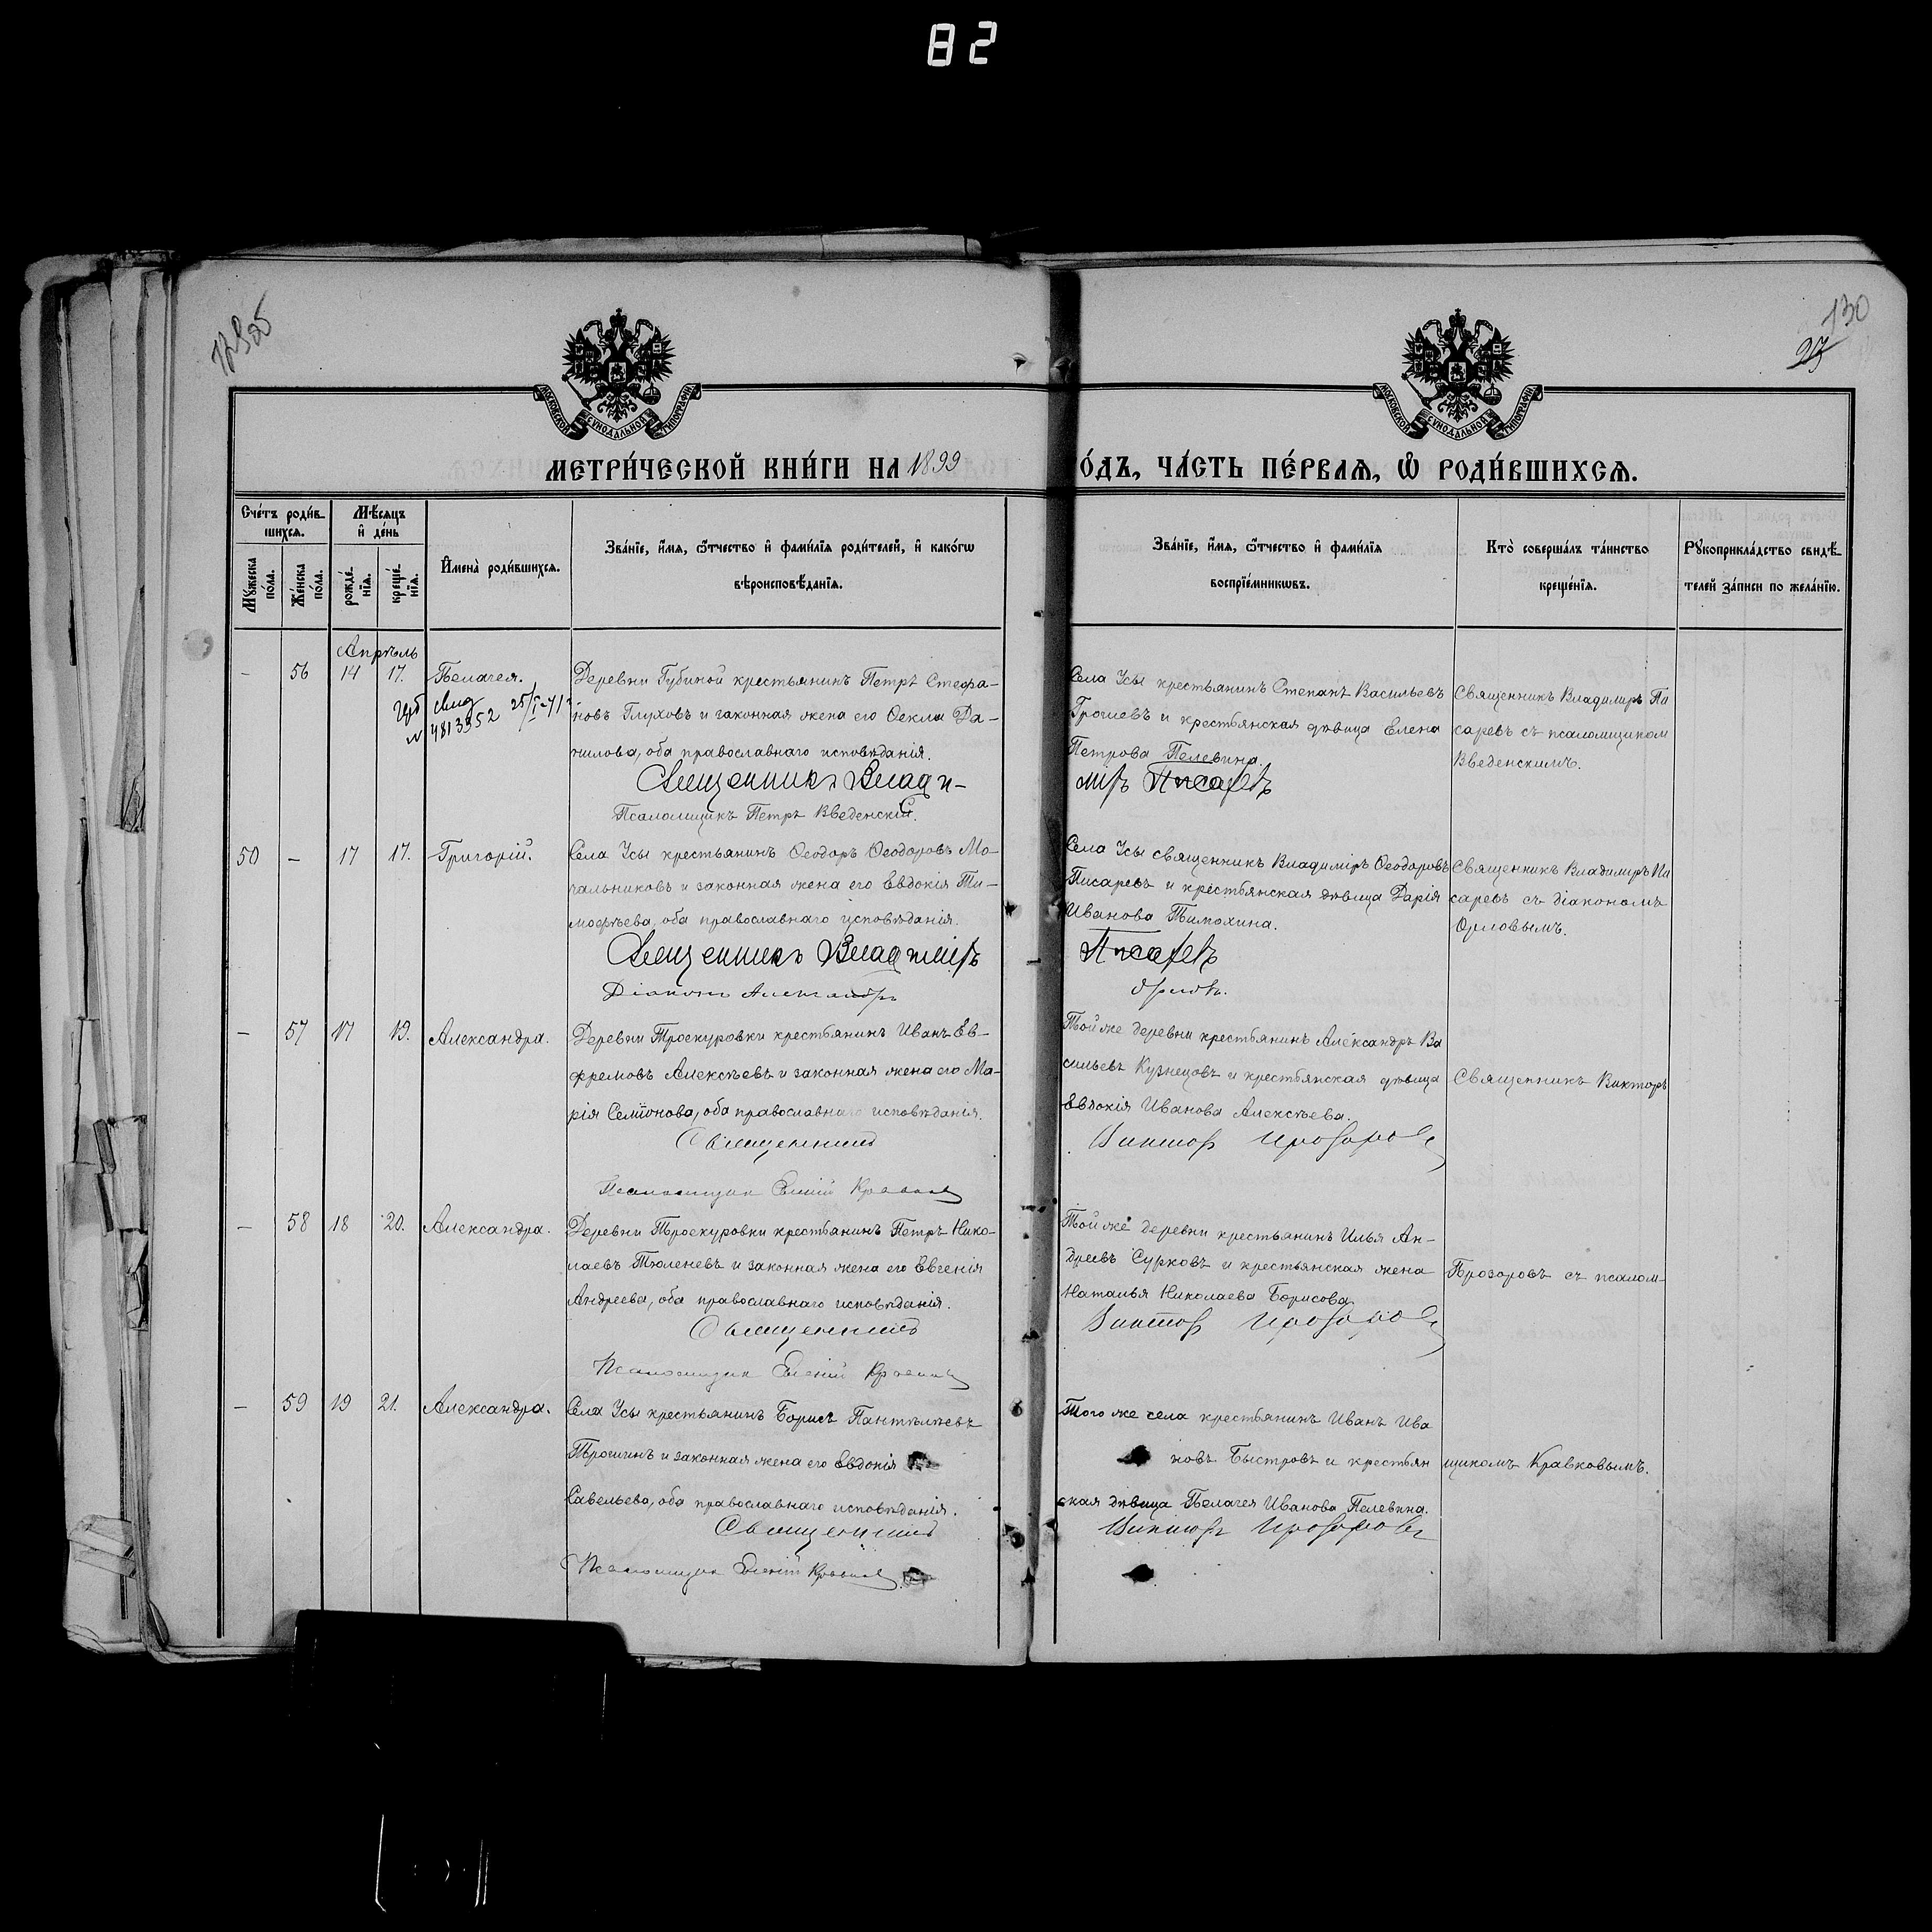 82
130
27
МОСКОВСКОЙ СУНОДАЛЬНОЙ ТИПОГРАФІИ
МОСКОВСКОЙ СУНОДАЛЬНОЙ ТИПОГРАФІИ
МЕТРИ́ЧЕСКОЙ КНИ́ГИ НА 1899
О́ДЪ, ЧА́СТЬ ПЕ́РВАѦ, Ѿ РОДИ́ВШИХСѦ.
Сче́тъ роди́в-
шихсѧ.
Мѣ́сѧцъ
и҆ де́нь
Мꙋ́жеска
по́ла.
Же́нска
по́ла.
рожде́-
нїѧ.
креще́-
нїѧ.
И҆мена̀ роди́вшихсѧ.
Зва́нїе, и҆́мѧ, ѻ҆́тчество и҆ фами́лїѧ роди́телей, и҆ како́гѡ
вѣроисповѣ́данїѧ.
Зва́нїе, и҆́мѧ, ѻ҆́тчество и҆ фами́лїѧ
воспрїе́мникѡвъ.
Кто̀ соверша́лъ та́инство
креще́нїѧ.
Рꙋкоприкла́дство свидѣ́-
телей за́писи по жела́нїю.
Апрѣль
— 56 14 17. Пелагея.
Деревни Губиной крестьянинъ Петръ Стефа-
новъ Глуховъ и законная жена его Ѳекла Да-
нилова, оба православнаго исповѣданія.
Священникъ Влади-
Псаломщикъ Петръ Введенскій.
Села Усы крестьянинъ Степанъ Васильевъ
и крестьянская дѣвица Елена
Петрова Пелевина.
миръ Писаревъ
Священникъ Владимiръ Пи
саревъ съ псаломщикомъ
Введенскимъ.
свид 25/I-41
№ 4813352
50 — 17 17. Григорій.
Села Усы крестьянинъ Ѳеодоръ Ѳеодоровъ Мо-
чальниковъ и законная жена его Евдокія Ти-
моѳѣева, оба православнаго исповѣданія.
Священникъ Владиміръ
Діаконъ Александръ
Села Усы священникъ Владиміръ Ѳеодоровъ
Писаревъ и крестьянская дѣвица Дарія
Иванова Тимохина.
Писаревъ
Орловъ.
Священникъ Владимiръ Пи
саревъ съ діакономъ
Орловымъ.
— 57 17 19. Александра.
Деревни Троекуровки крестьянинъ Иванъ Ев-
фремовъ Алексѣевъ и законная жена его Ма-
рія Семіонова, оба православнаго исповѣданія.
Священникъ
Псаломщикъ Евгеній Кравковъ
Той же деревни крестьянинъ Александръ Ва
сильевъ Кузнецовъ и крестьянская дѣвица
Евдокія Иванова Алексѣева.
Викторъ Прозоровъ
Священникъ Викторъ
— 58 18 20. Александра.
Деревни Троекуровки крестьянинъ Петръ Нико-
лаевъ Тюленевъ и законная жена его Евгенія
Андреева, оба православнаго исповѣданія.
Священникъ
Псаломщикъ Евгеній Кравковъ
Той же деревни крестьянинъ Илья Ан-
дреевъ Сурковъ и крестьянская жена
Наталья Николаева Борисова
Викторъ Прозоровъ
Прозоровъ съ псалом-
— 59 19 21. Александра.
Села Усы крестьянинъ Борисъ Пантелѣевъ
Трошинъ и законная жена его Евдокія
Савельева, оба православнаго исповѣданія.
Священникъ
Псаломщикъ Евгеній Кравковъ
Того же села крестьянинъ Иванъ Ива
новъ Быстровъ и крестьян
ская дѣвица Пелагея Иванова Пелевина.
Викторъ Прозоровъ
щикомъ Кравковымъ.